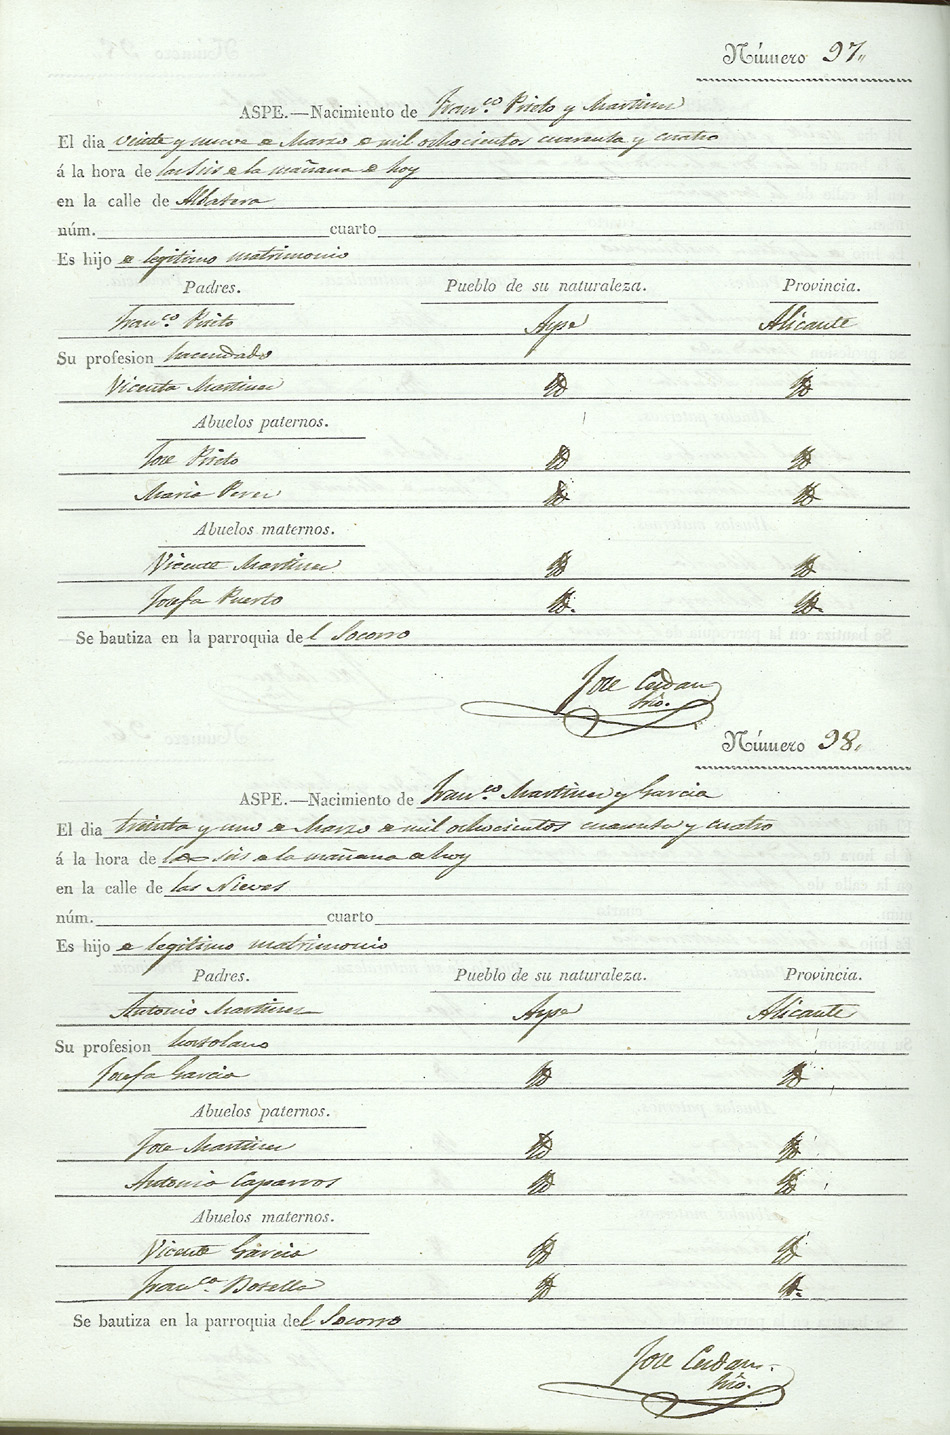 Número 97.
ASPE.—Nacimiento de Fran.co Prieto y Martinez
El dia veinte y nueve de Marzo de mil ochocientos cuarenta y cuatro
á la hora de las seis de la mañana de hoy
en la calle de Albatera
núm. cuarto
Es hijo de legitimo matrimonio
Padres. Pueblo de su naturaleza. Provincia.
Fran.co Prieto Aspe Alicante
Su profesion hacendado
Vicenta Martinez Yd Yd
Abuelos paternos.
Jose Prieto Yd Yd
Maria Perez Yd Yd
Abuelos maternos.
Vicente Martinez Yd Yd
Josefa Puerto Yd. Yd.
Se bautiza en la parroquia del Socorro
Jose Cerdan
Srio.
Número 98.
ASPE.—Nacimiento de Fran.co Martinez y Garcia
El dia treinta y uno de Marzo de mil ochocientos cuarenta y cuatro
á la hora de las seis de la mañana de hoy
en la calle de las Nieves
núm. cuarto
Es hijo de legitimo matrimonio
Padres. Pueblo de su naturaleza. Provincia.
Antonio Martinez Aspe Alicante
Su profesion hortolano
Josefa Garcia Yd Yd
Abuelos paternos.
Jose Martinez Yd Yd
Antonia Caparros Yd Yd
Abuelos maternos.
Vicente Garcia Yd Yd
Fran.ca Botella Yd Yd.
Se bautiza en la parroquia del Socorro
Jose Cerdan
Srio.